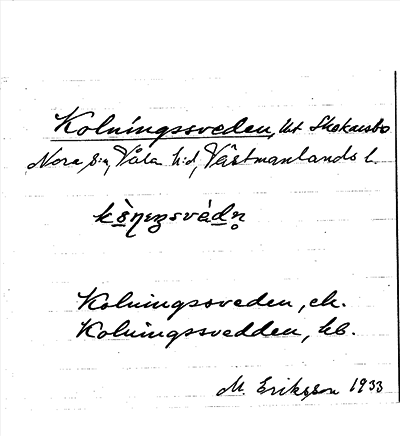 Kolningssveden, ut Skekarsbo
Nora s:n, Våla h:d, Västmanlands l.
kò̱ŋezsvàd̲n̥
Kolningssveden, ek.
Kolningssvedden, kb.
M. Eriksson 1933